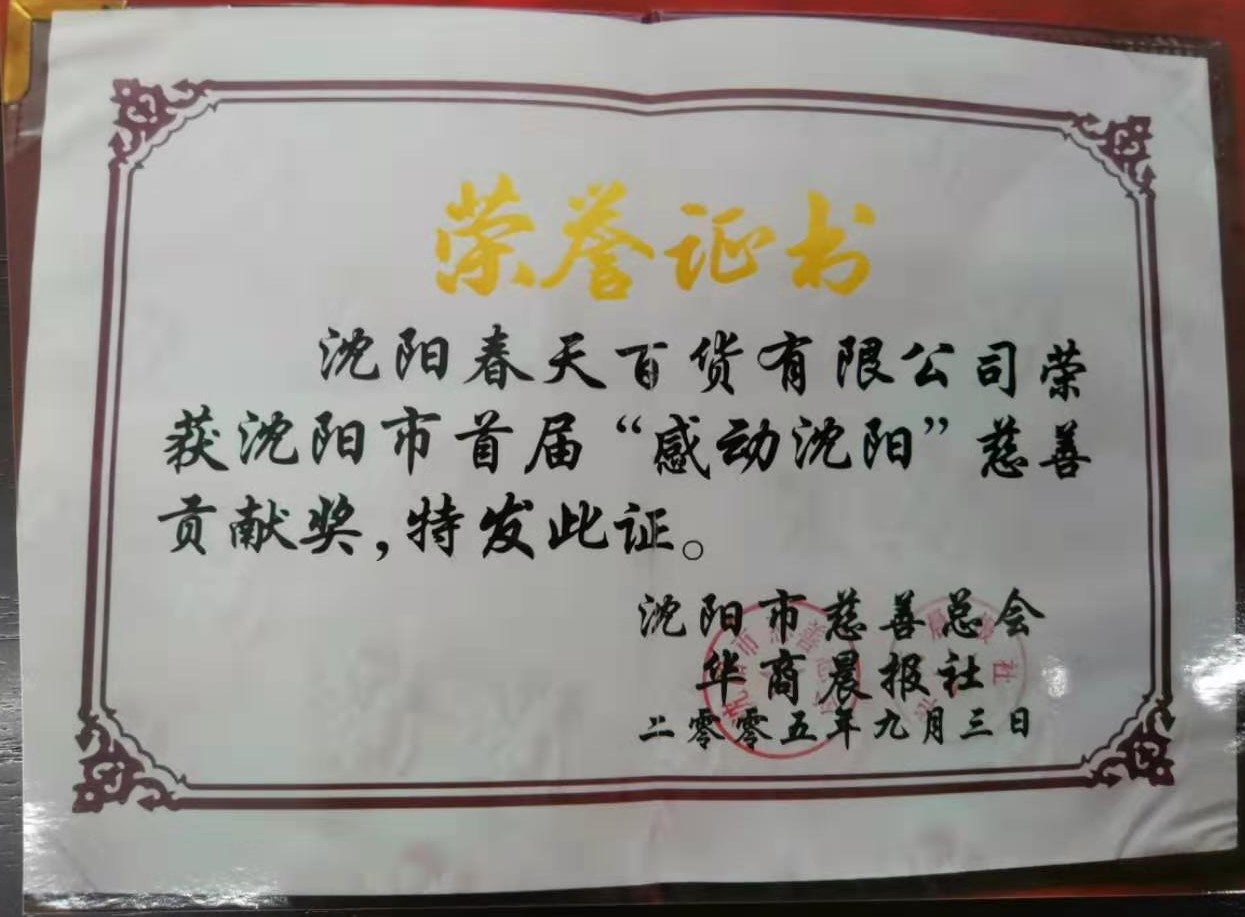 荣誉证书
沈阳春天百货有限公司荣
获沈阳市首届“感动沈阳”慈善
贡献奖，特发此证。
沈阳市慈善总会
华商晨报社
二零零五年九月三日